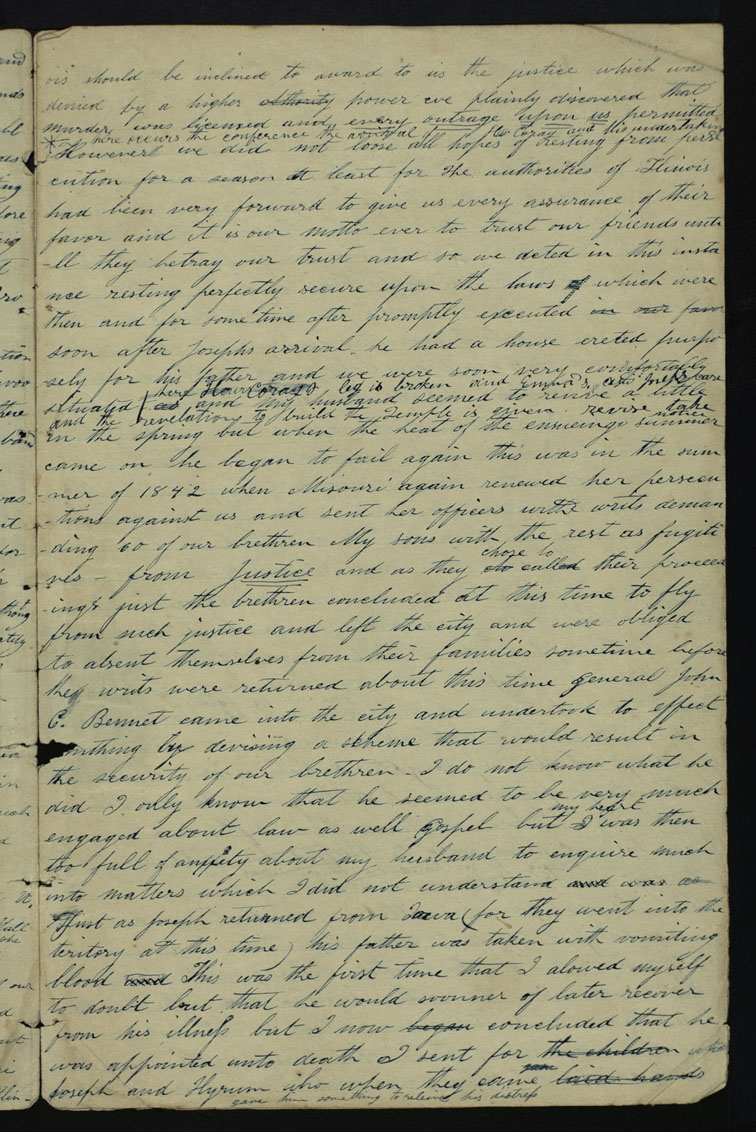 ois should be inclined to award to us the justice which was
denied by a higher othority power we plainly discovered that
murder was licensed and every outrage upon us permitted
* here occurs the conference the arrival of and his undertaking
However we did not loose all hopes of resting from perse
cution for a season at least for the authorities of Illinois
had been very forward to give us every assurance of their
favor and it is our motto ever to trust our friends unti
-ll they betray our trust and so we acted in this insta
nce resting perfectly secure upon the laws of which were
then and for some time after promptly executed in our favor
soon after Josephs arrival he had a house ereted purpo
sely for his father and we were soon very comfortably
here leg is broken and Emma's
situated as and my husband seemed to revive a little
and the revelation to build the Temple is given. revise take
in the spring but when the heat of the ensueing summer
came on he began to fail again this was in the sum
mer of 1842 when Misouri again renewed her persecu
-tions against us and sent her officers with writs deman
-ding 60 of our brethren My sons with the rest as fugiti
chose to
ves - from Justice and as they called their proceed
-ing's just the brethren concluded at this time to fly
from such justice and left the city and were obliged
to absent themselves from their families sometime before
they writs were returned about this time general John
C. Bennet came into the city and undertook to effect
by devising a scheme that would result in
the security of our brethren - I do not know what he
did I only know that he seemed to be very much
my heart
engaged about law as well gospel but I was then
too full of anxiety about my husband to enquire much
into matters which I did not understand and was as
Just as Joseph returned from Iawa (for they went into the
teritory at this time) his father was taken with vomiting
blood and This was the first time that I alowed myself
to doubt but that he would soonner of later recover
from his illness but I now began concluded that he
was appointed unto death I sent for the children
Joseph and Hyrum who when they came laid hands
gave him something to releive his distress